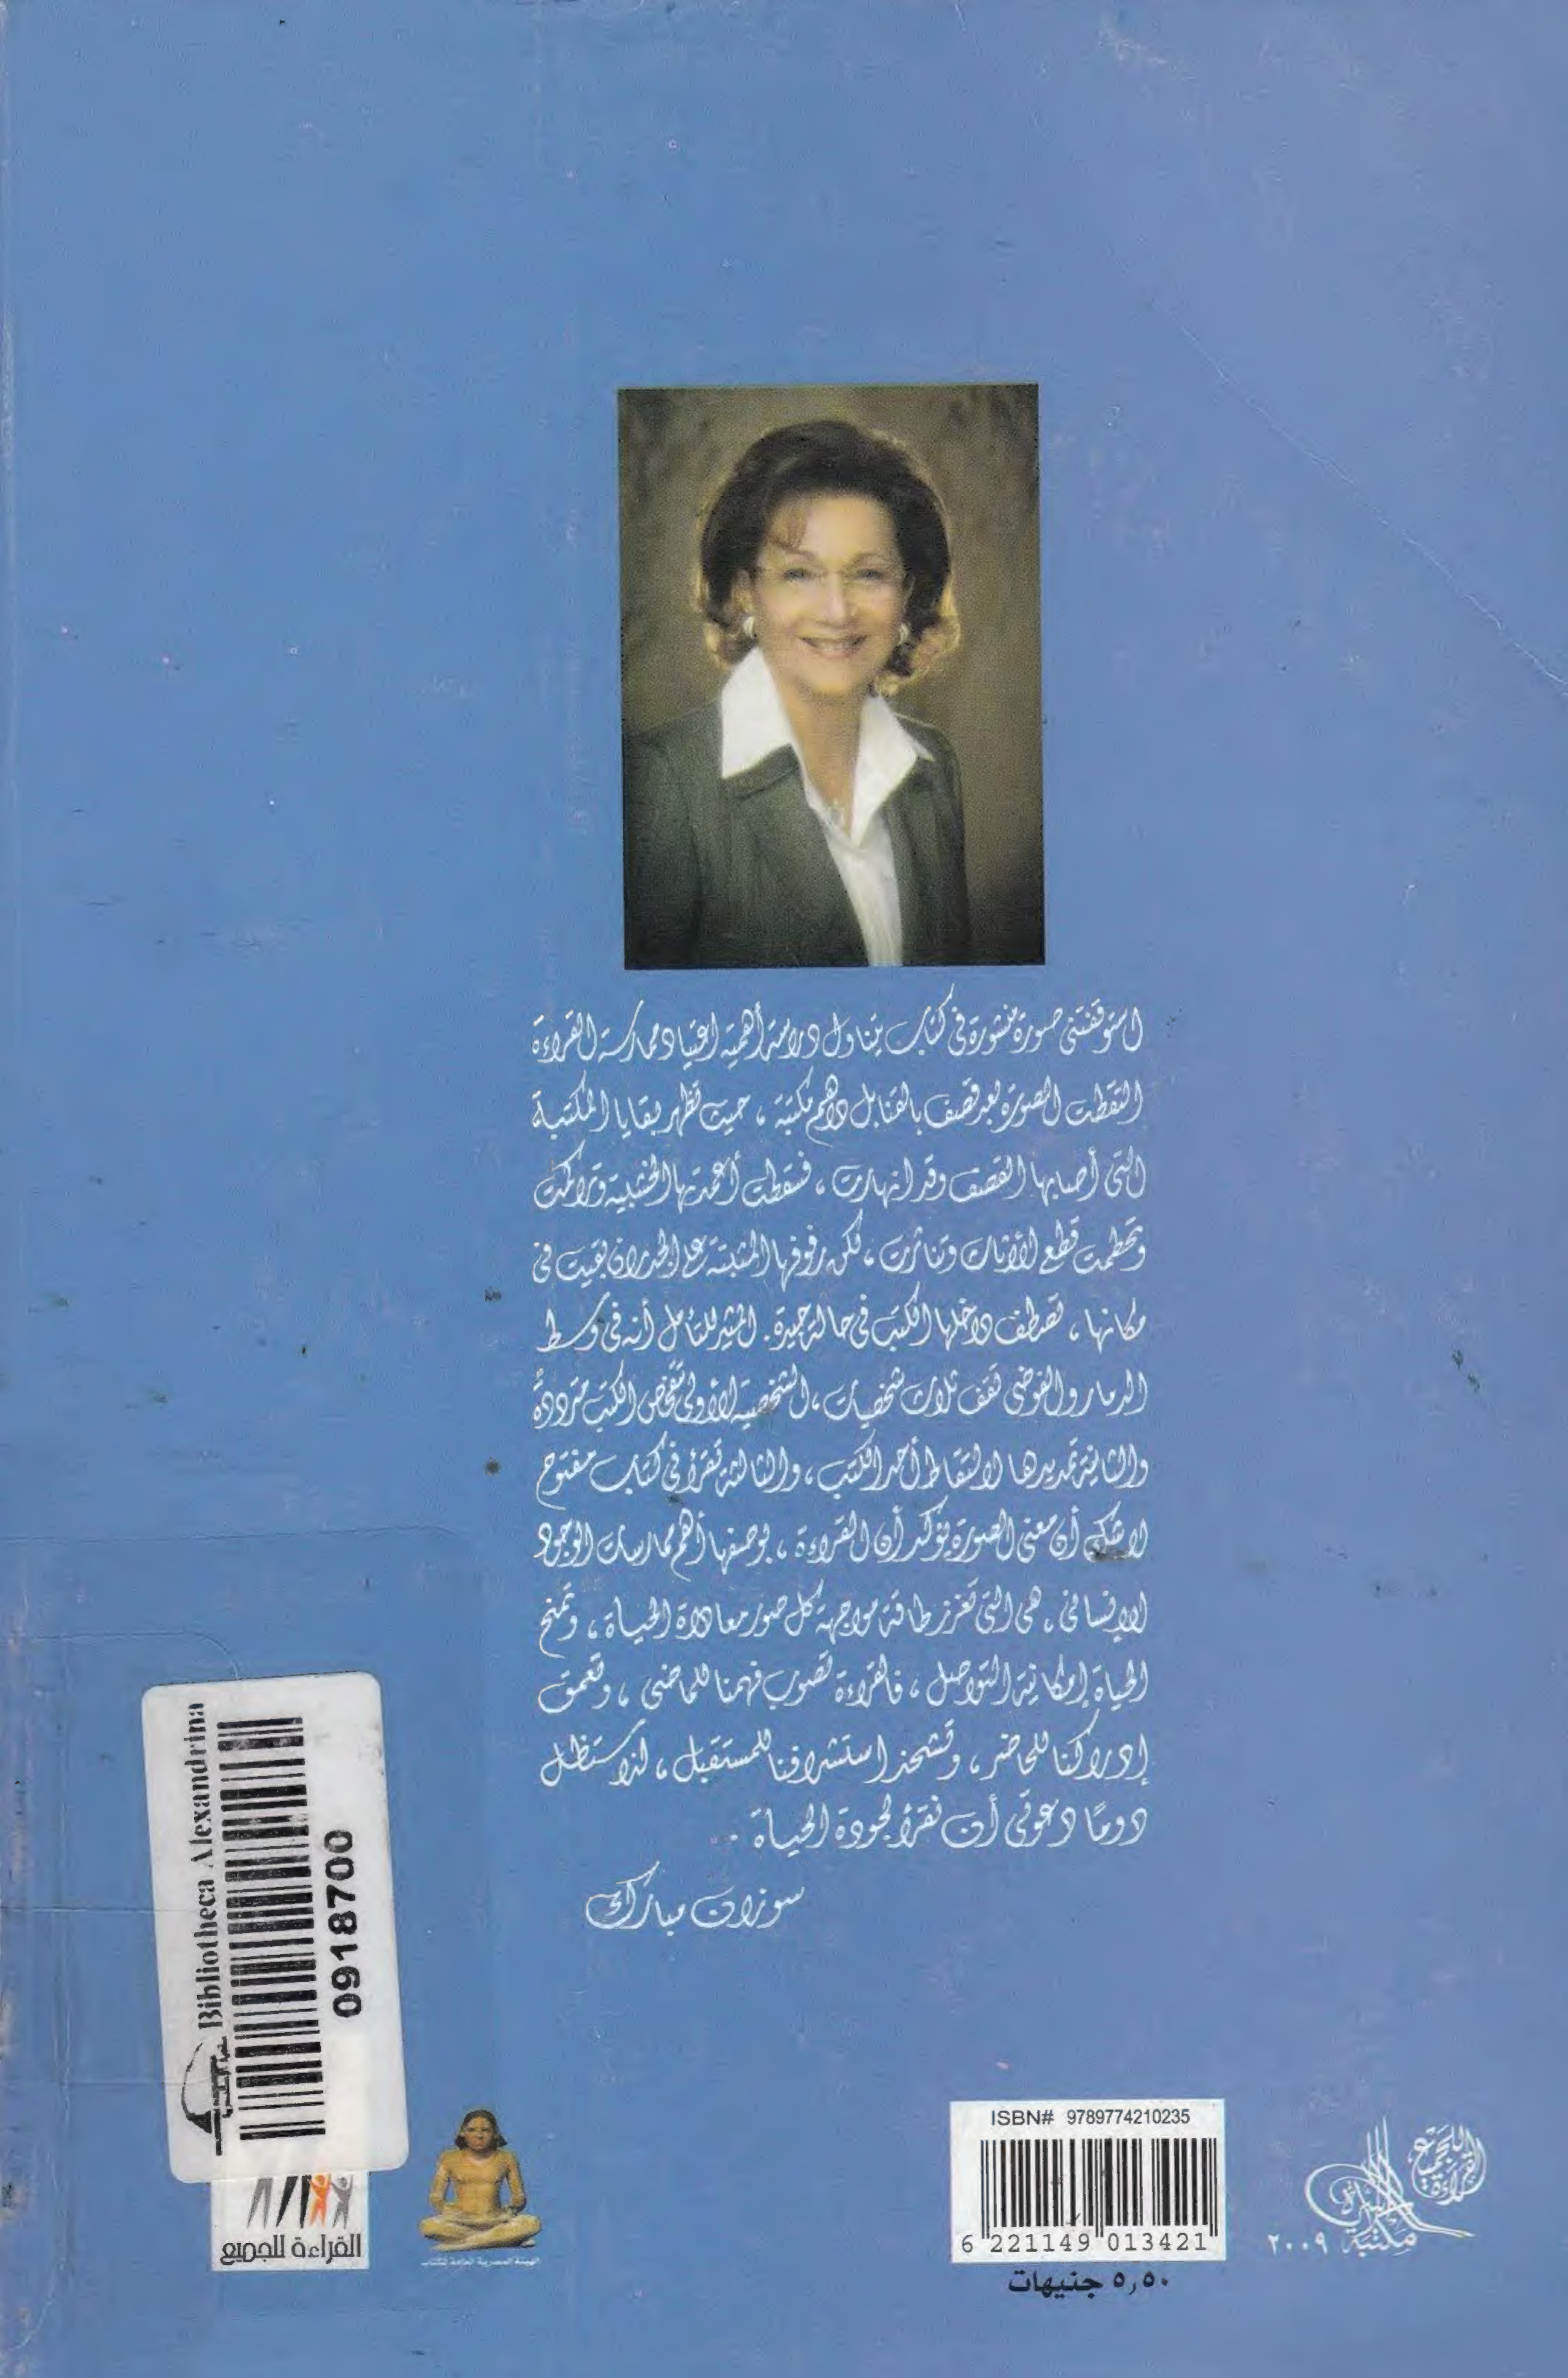 استوقفتنى صورة منشورة فى كتاب يتناول دراسة أهمية اعتياد ممارسة القراءة
التقطت الصورة بعد قصف بالقنابل داهم مكتبة ، حيث تظهر بقايا المكتبة
التى أصابها القصف وقد انهارت ، فسقطت أعمدتها الخشبية وتراكمت
وتحطمت قطع الأثاث وتناثرت ، لكن رفوفها المثبتة على الجدران بقيت فى
مكانها ، تصطف داخلها الكتب فى حالة جيدة. المثير للتأمل أنه فى وسط
الدمار والفوضى تقف ثلاث شخصيات ، الشخصية الأولى تتفحص الكتب مترددة
والثانية تمد يدها لالتقاط أحد الكتب ، والثالثة تقرأ فى كتاب مفتوح
لا شك أن معنى الصورة يؤكد أن القراءة ، بوصفها أهم ممارسات الوجود
الإنسانى ، هى التى تعزز طاقة مواجهة كل صور معاداة الحياة ، وتمنح
الحياة إمكانية التواصل ، فالقراءة تصوب فهمنا للماضى ، وتعمق
إدراكنا للحاضر ، وتشحذ استشرافنا للمستقبل ، لذا ستظل
دومًا دعوتى أن نقرأ لجودة الحياة ..
سوزان مبارك
Bibliotheca Alexandrina
0918700
القراءة للجميع
الهيئة المصرية العامة للكتاب
ISBN# 9789774210235
6 221149 013421
٥,٥٠ جنيهات
القراءة للجميع
مكتبة الأسرة
٢٠٠٩